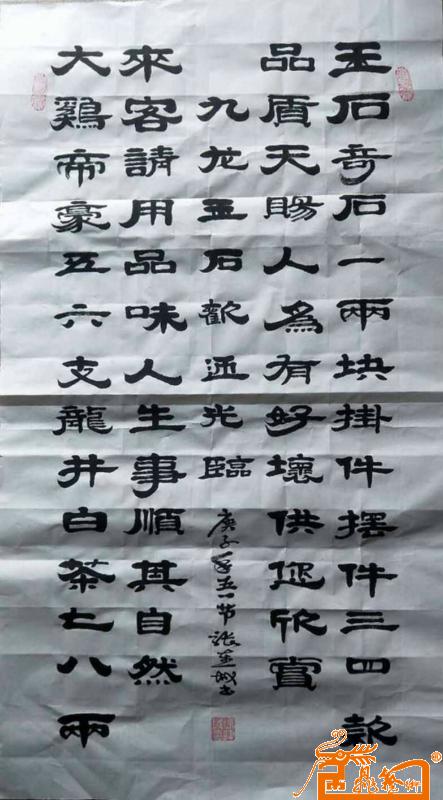 玉石奇石一兩块掛件摆件三四款
品質天賜人為有好壞供您欣賞
大鷄帝豪五六支龍井白茶七八兩
來客請用品味人生事順其自然
九龙玉石歡迎光臨
庚子年五一节張书